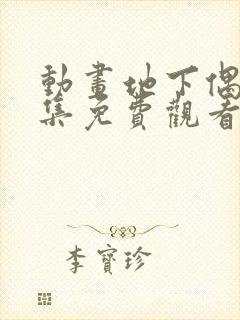 動畫地下偶
集免費觀看
李寶珍